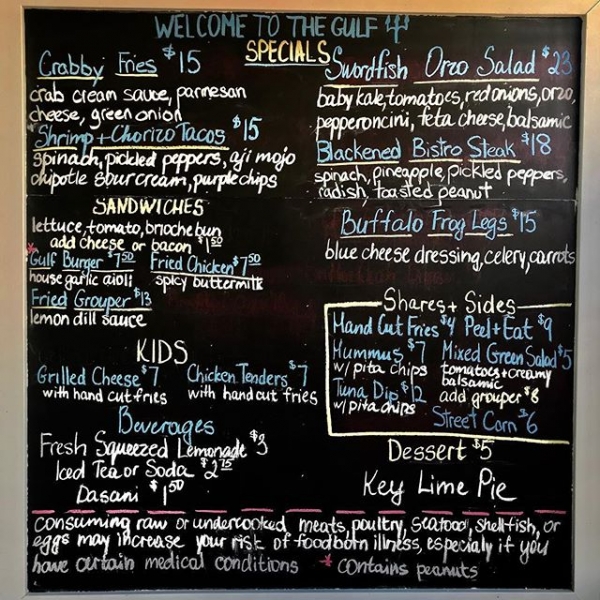 WELCOME TO THE GULF
SPECIALS
Crabby Fries $15
crab cream sauce, parmesan
cheese, green onion
Shrimp + Chorizo Tacos $15
spinach, pickled peppers, aji mojo
chipotle sour cream, purple chips
Swordfish Orzo Salad $23
baby kale, tomatoes, red onions, orzo,
pepperoncini, feta cheese, balsamic
Blackened Bistro Steak $18
spinach, pineapple, pickled peppers,
radish, toasted peanut
Buffalo Frog Legs $15
blue cheese dressing, celery, carrots
SANDWICHES
lettuce, tomato, brioche bun
add cheese or bacon $1.50
*Gulf Burger $7.50
house garlic aioli
Fried Chicken $7.50
spicy buttermilk
Fried Grouper $13
lemon dill sauce
KIDS
Grilled Cheese $7
with hand cut fries
Chicken Tenders $7
with hand cut fries
Beverages
Fresh Squeezed Lemonade $3
Iced Tea or Soda $2.75
Dasani $1.50
Shares + Sides
Hand Cut Fries $4
Hummus $7
w/ pita chips
Tuna Dip $12
w/ pita chips
Peel + Eat $9
Mixed Green Salad $5
tomatoes + creamy
balsamic
add grouper $8
Street Corn $6
Dessert $5
Key Lime Pie
consuming raw or undercooked meats, poultry, seafood, shellfish, or
eggs may increase your risk of foodborn illness, especialy if you
have certain medical conditions * contains peanuts